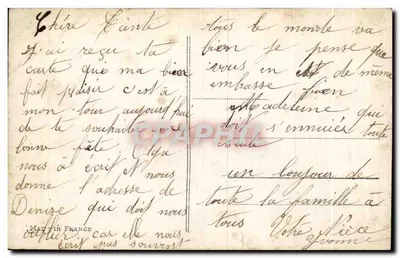 Chère Tante
J'ai reçu ta
carte que ma bien
fait plaisir c'est à
mon tour aujourd'hui
de te souhaiter une
bonne fête Olga
nous à écrit et nous
donne l'adresse de
Denise qui doit nous
oublier, car elle nous
écrit pas souvent
MADE IN FRANCE
tous le monde va
bien je pense que
vous en est de même
embrasse bien
Madeleine qui
doit s'ennuier toute
seule
un bonjour de
toute la famille à
tous
Votre Nièce
Yvonne